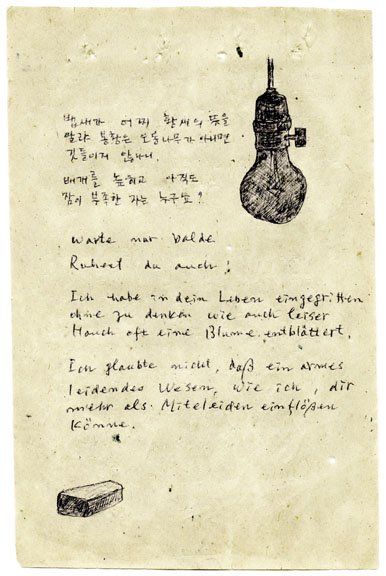 뱁새가 어찌 황새의 뜻을
알랴 봉황은 오동나무가 아니면
깃들이지 않나니.
배개를 높히고 아직도
잠이 부족한 자는 누구뇨?
warte nur balde
Ruhest du auch!
Ich habe in dein Leben eingegriffen
ohne zu denken wie auch leiser
Hauch oft eine Blume entblättert.
Ich glaubte nicht, daß ein armes
leidendes Wesen, wie ich, dir
mehr als Miteleiden einflößen
Könne.